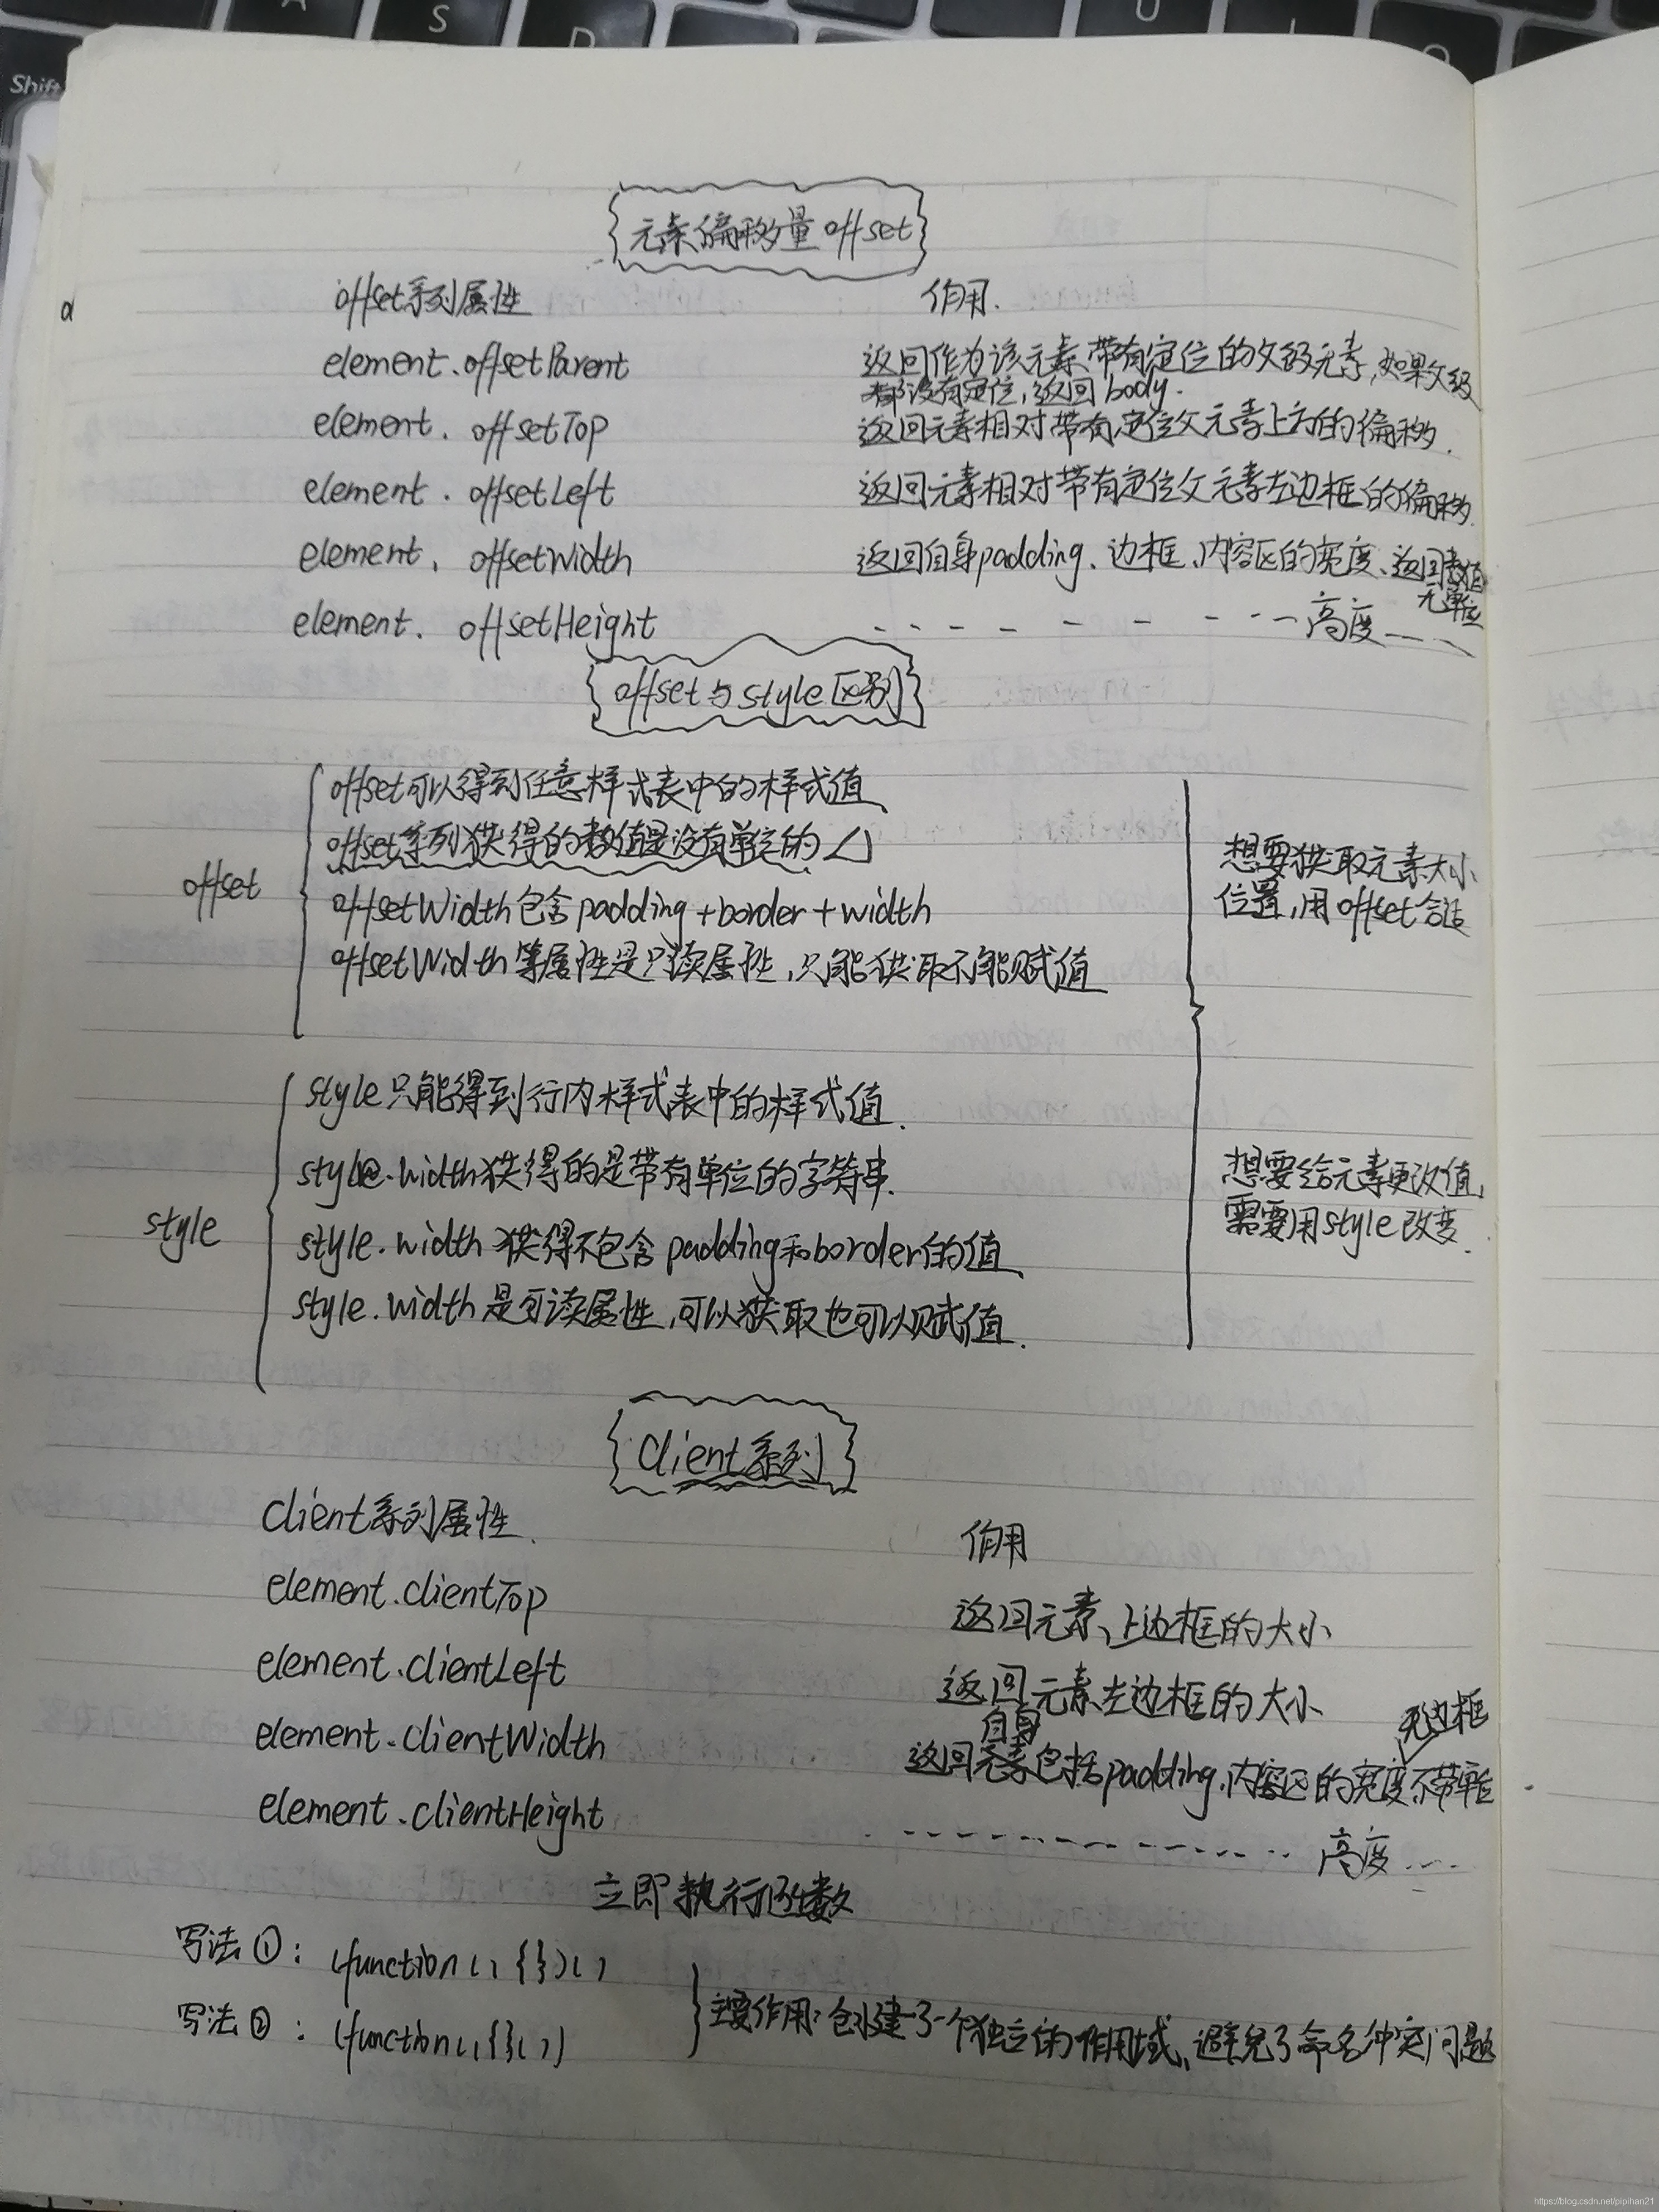 元素偏移量 offset
offset系列属性 作用.
element.offsetParent 返回作为该元素带有定位的父级元素,如果父级
都没有定位,返回 body.
element. offsetTop 返回元素相对带有定位父元素上方的偏移.
element. offsetLeft 返回元素相对带有定位父元素左边框的偏移.
element. offsetWidth 返回自身padding、边框、内容区的宽度、返回数值
无单位
element. offsetHeight - - - - - - - - - 高度 — —
offset与style区别
offset
offset可以得到任意样式表中的样式值
offset系列获得的数值是没有单位的
offsetWidth包含padding+border+width
offsetWidth等属性是只读属性,只能获取不能赋值
想要获取元素大小
位置,用offset合适
style
style只能得到行内样式表中的样式值.
style.width获得的是带有单位的字符串.
style.width 获得不包含padding和border的值
style.width 是可读属性,可以获取也可以赋值.
想要给元素更改值,
需要用style改变.
Client系列
Client系列属性. 作用
element.clientTop 返回元素上边框的大小
element.clientLeft 返回元素左边框的大小
自身 无边框
element.clientWidth 返回元素包括padding、内容区的宽度、不带单位
element.clientHeight - - - - - - - - - - 高度 - - -
立即执行函数
写法①: (function() {})()
写法②: (function(){}())
主要作用:创建了一个独立的作用域、避免了命名冲突问题
Shift
A
S
D
U
I
O
https://blog.csdn.net/pipihan21